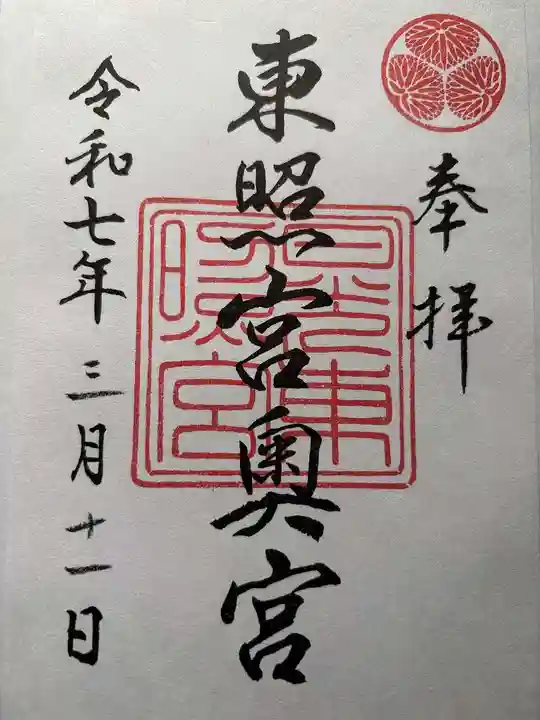 奉拝
東照宮奥宮
日光東照宮
令和七年三月十一日